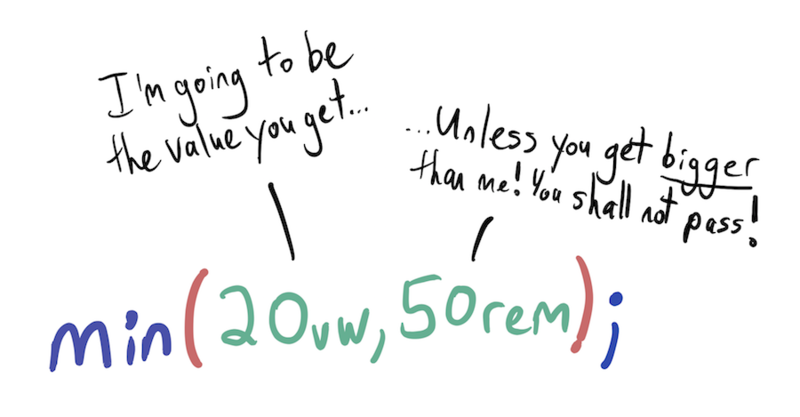 I'm going to be
the value you get...
...Unless you get bigger
than me! You shall not pass!
min(20vw,50rem);